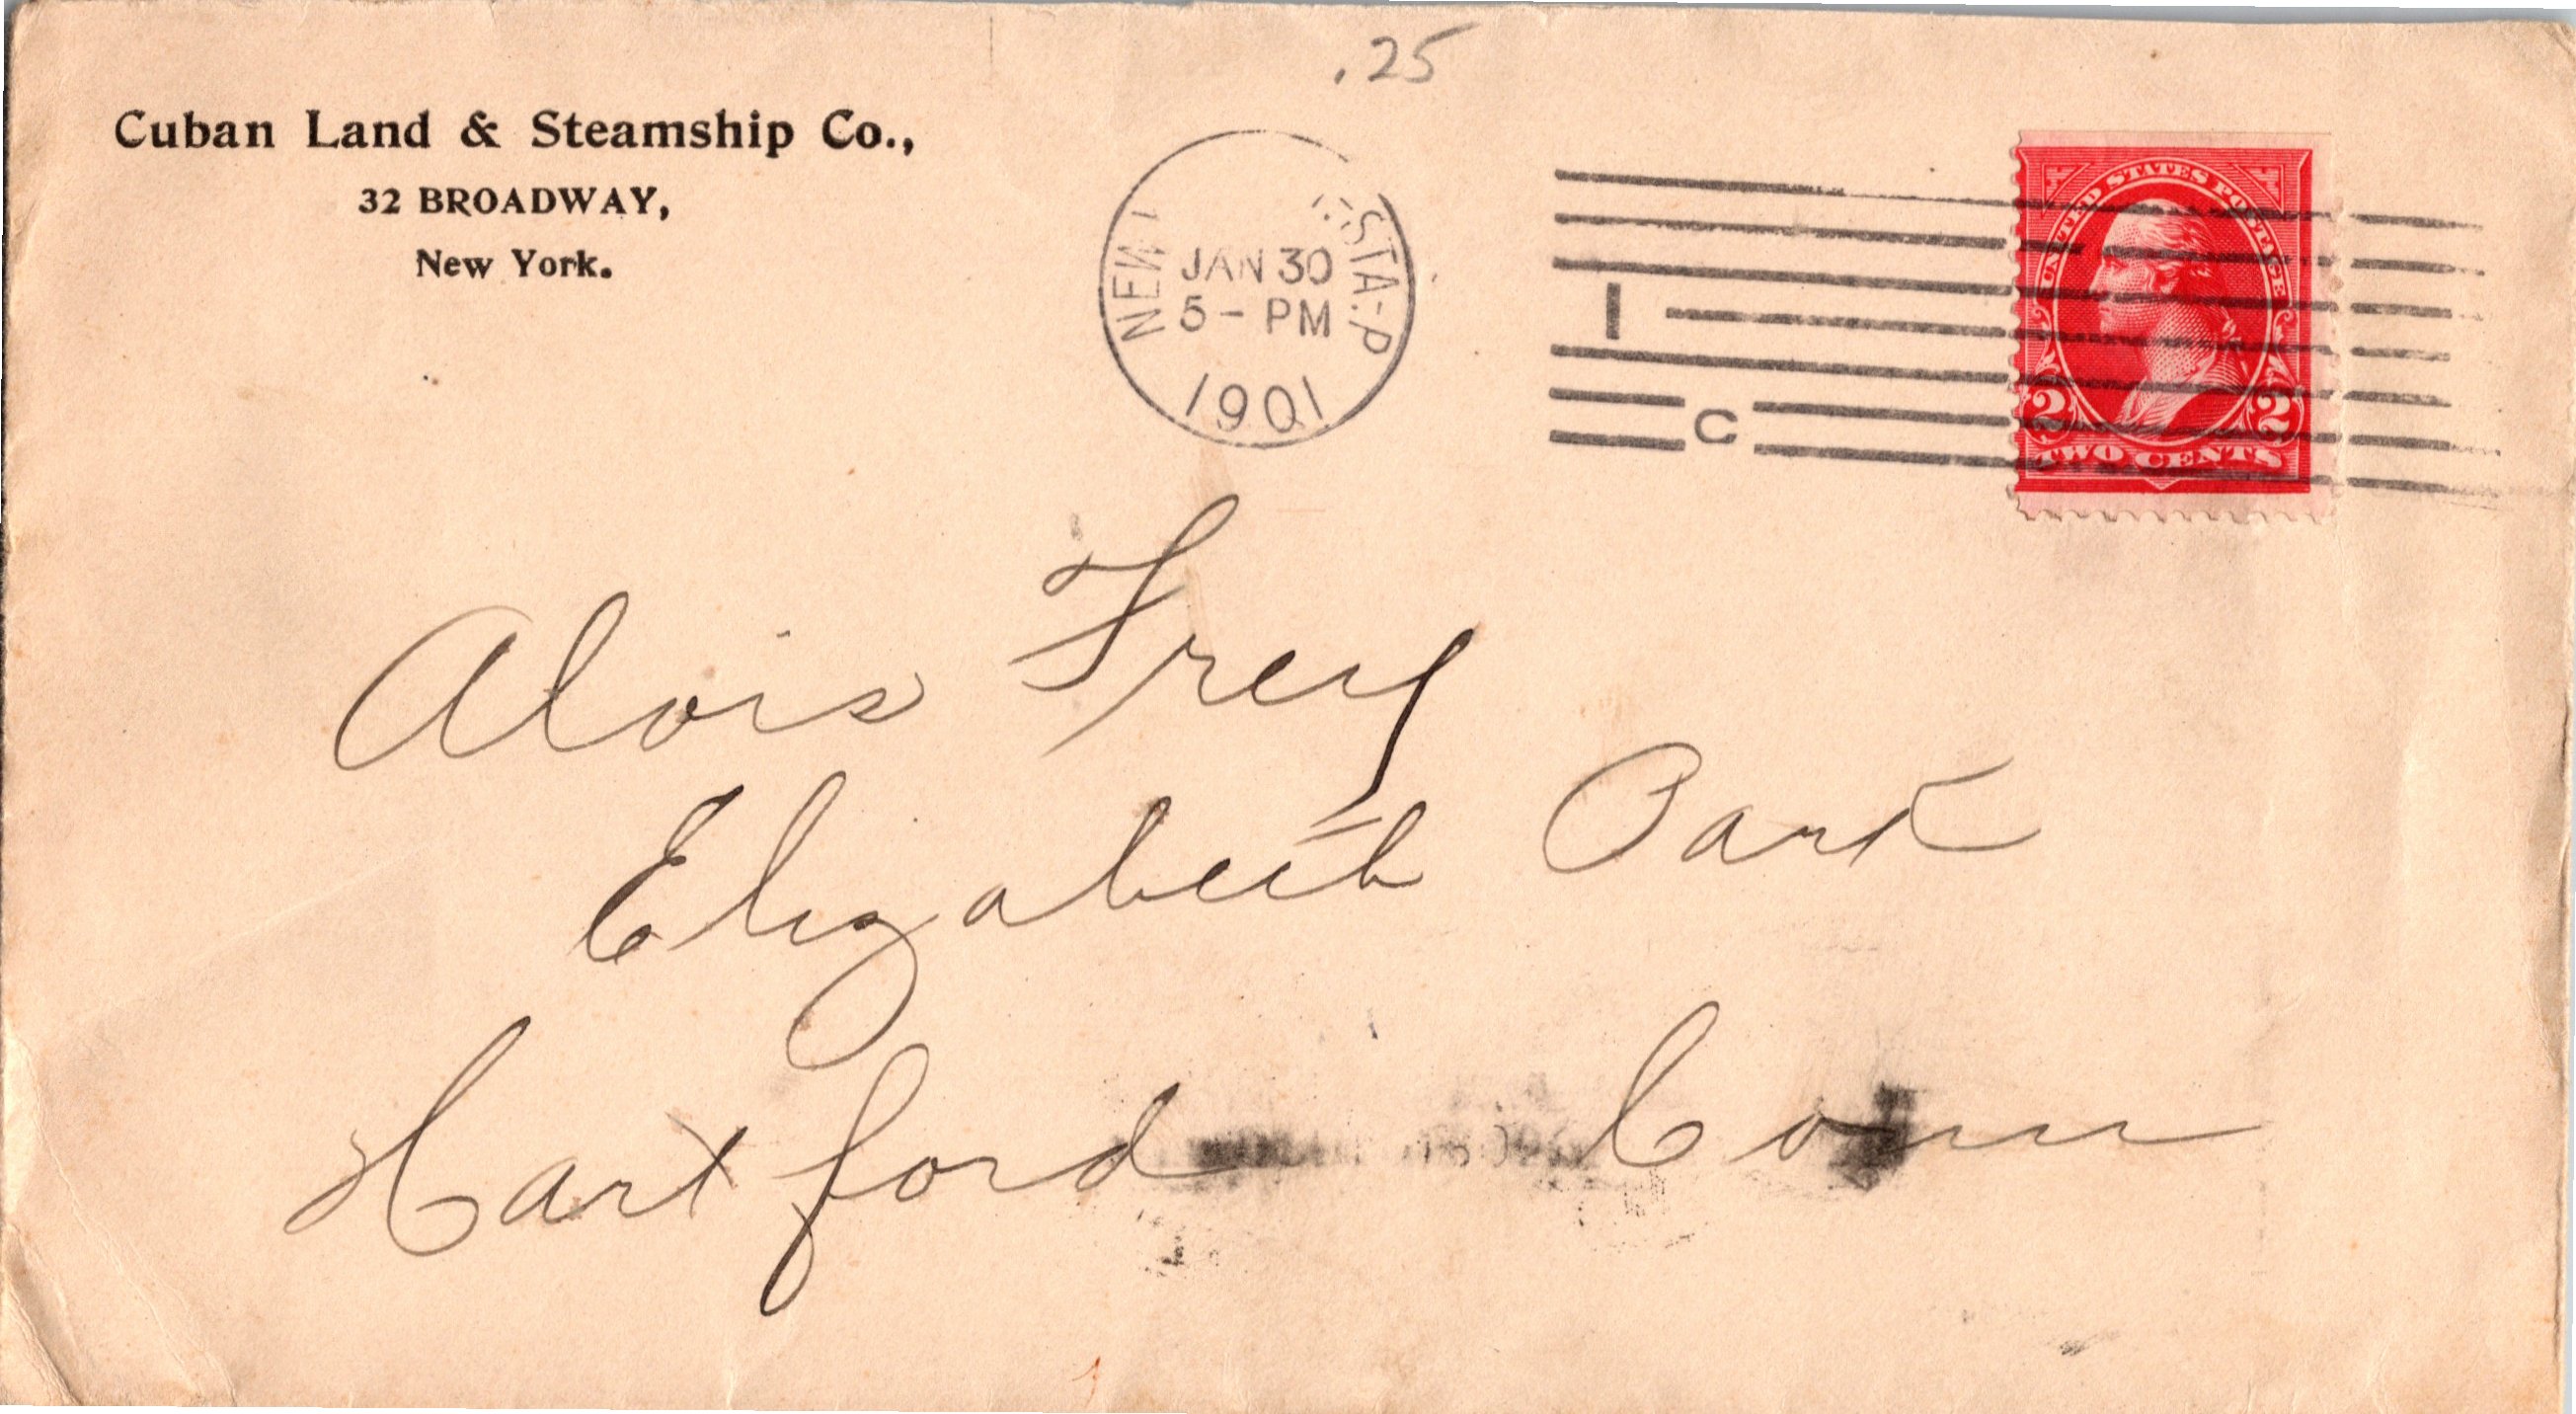 .25
Cuban Land & Steamship Co.,
32 BROADWAY,
New York.
NEW STA. P
JAN 30
5 - PM
1901
1
C
UNITED STATES POSTAGE
2 2
TWO CENTS
Alois Frey
Elizabeth Park
Hartford Conn